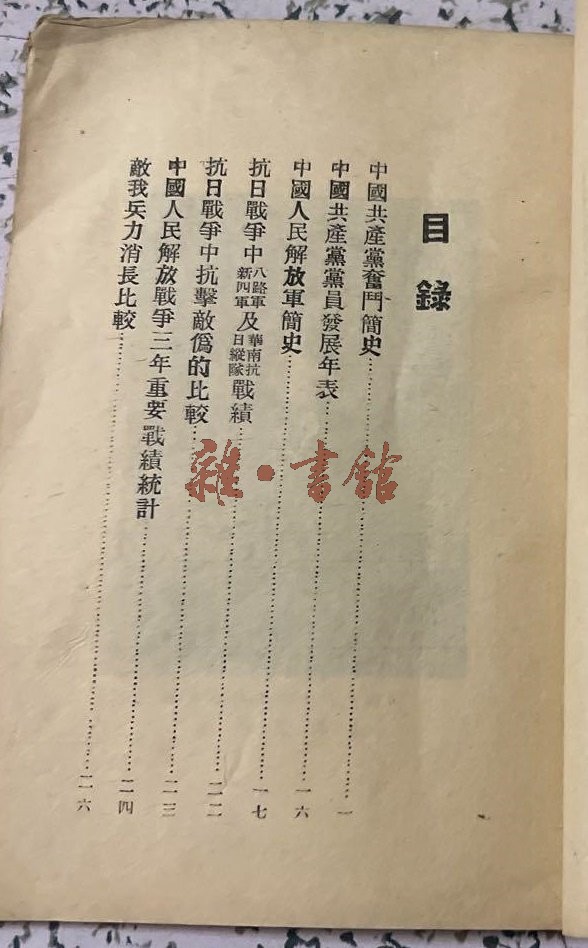 目錄
中國共產黨奮鬥簡史……一
中國共產黨黨員發展年表……一六
中國人民解放軍簡史……一七
抗日戰爭中八路軍新四軍及華南抗日縱隊戰績……二二
抗日戰爭中抗擊敵僞的比較……二三
中國人民解放戰爭三年重要戰績統計……二四
敵我兵力消長比較……二六
雜·書館